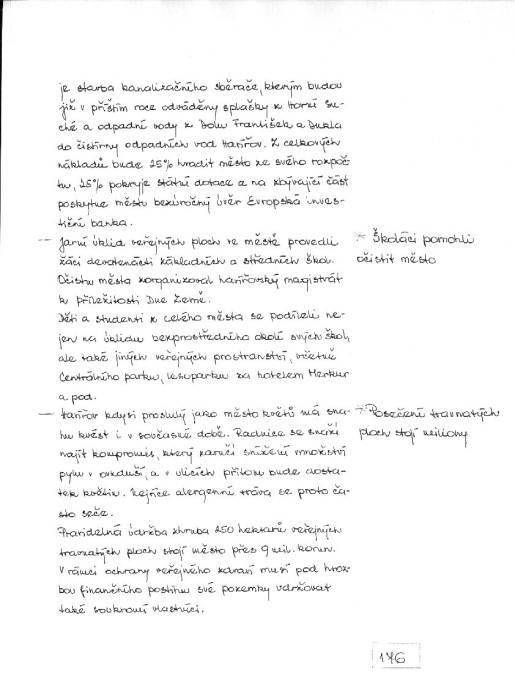 je stavba kanalizačního sběrače, kterým budou
již v příštím roce odváděny splašky z Horní Su-
ché a odpadní vody z Dolu František a Dukla
do čistírny odpadních vod Havířov. Z celkových
nákladů bude 25% hradit město ze svého rozpoč-
tu, 25% pokryje státní dotace a na zbývající část
poskytne městu bezúročný úvěr Evropská inves-
tiční banka.
— Jarní úklid veřejných ploch ve městě provedli
žáci devatenácti základních a středních škol.
Očistu města zorganizoval havířovský magistrát
k příležitosti Dne Země.
Děti a studenti z celého města se podíleli ne-
jen na úklidu bezprostředního okolí svých škol,
ale také jiných veřejných prostranství, včetně
Centrálního parku, lesoparku za hotelem Merkur
a pod.
* Školáci pomohli
očistit město
— Havířov kdysi proslulý jako město květů má sna-
hu kvést i v současné době. Radnice se snaží
najít kompromis, který zaručí snížení množství
pylu v ovzduší, a v ulicích přitom bude dosta-
tek květin. Nejvíce alergenní tráva se proto ča-
sto seče.
Pravidelná údržba zhruba 250 hektarů veřejných
travnatých ploch stojí město přes 9 mil. korun.
V rámci ochrany veřejného zdraví musí pod hroz-
bou finančního postihu své pozemky udržovat
také soukromí vlastníci.
* Posečení travnatých
ploch stojí miliony
176